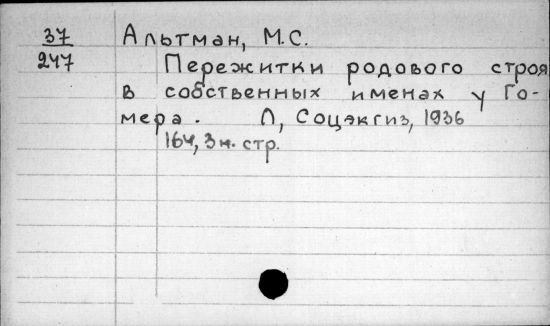 37
247
Альтман, М.С.
Пережитки родового строя
в собственных именах у Го-
мера. Л, Соцэкгиз, 1936
164, 3 н. стр.